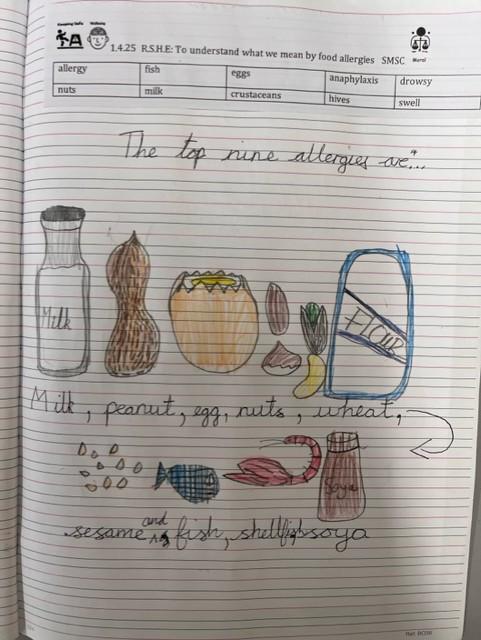 Keeping Safe Wellbeing
1.4.25 R.S.H.E: To understand what we mean by food allergies SMSC Moral
allergy fish eggs anaphylaxis drowsy
nuts milk crustaceans hives swell
The top nine allergies are...
Milk
FLOUR
Milk, peanut, egg, nuts, wheat,
Soya
and
sesame fish, shellfish soya